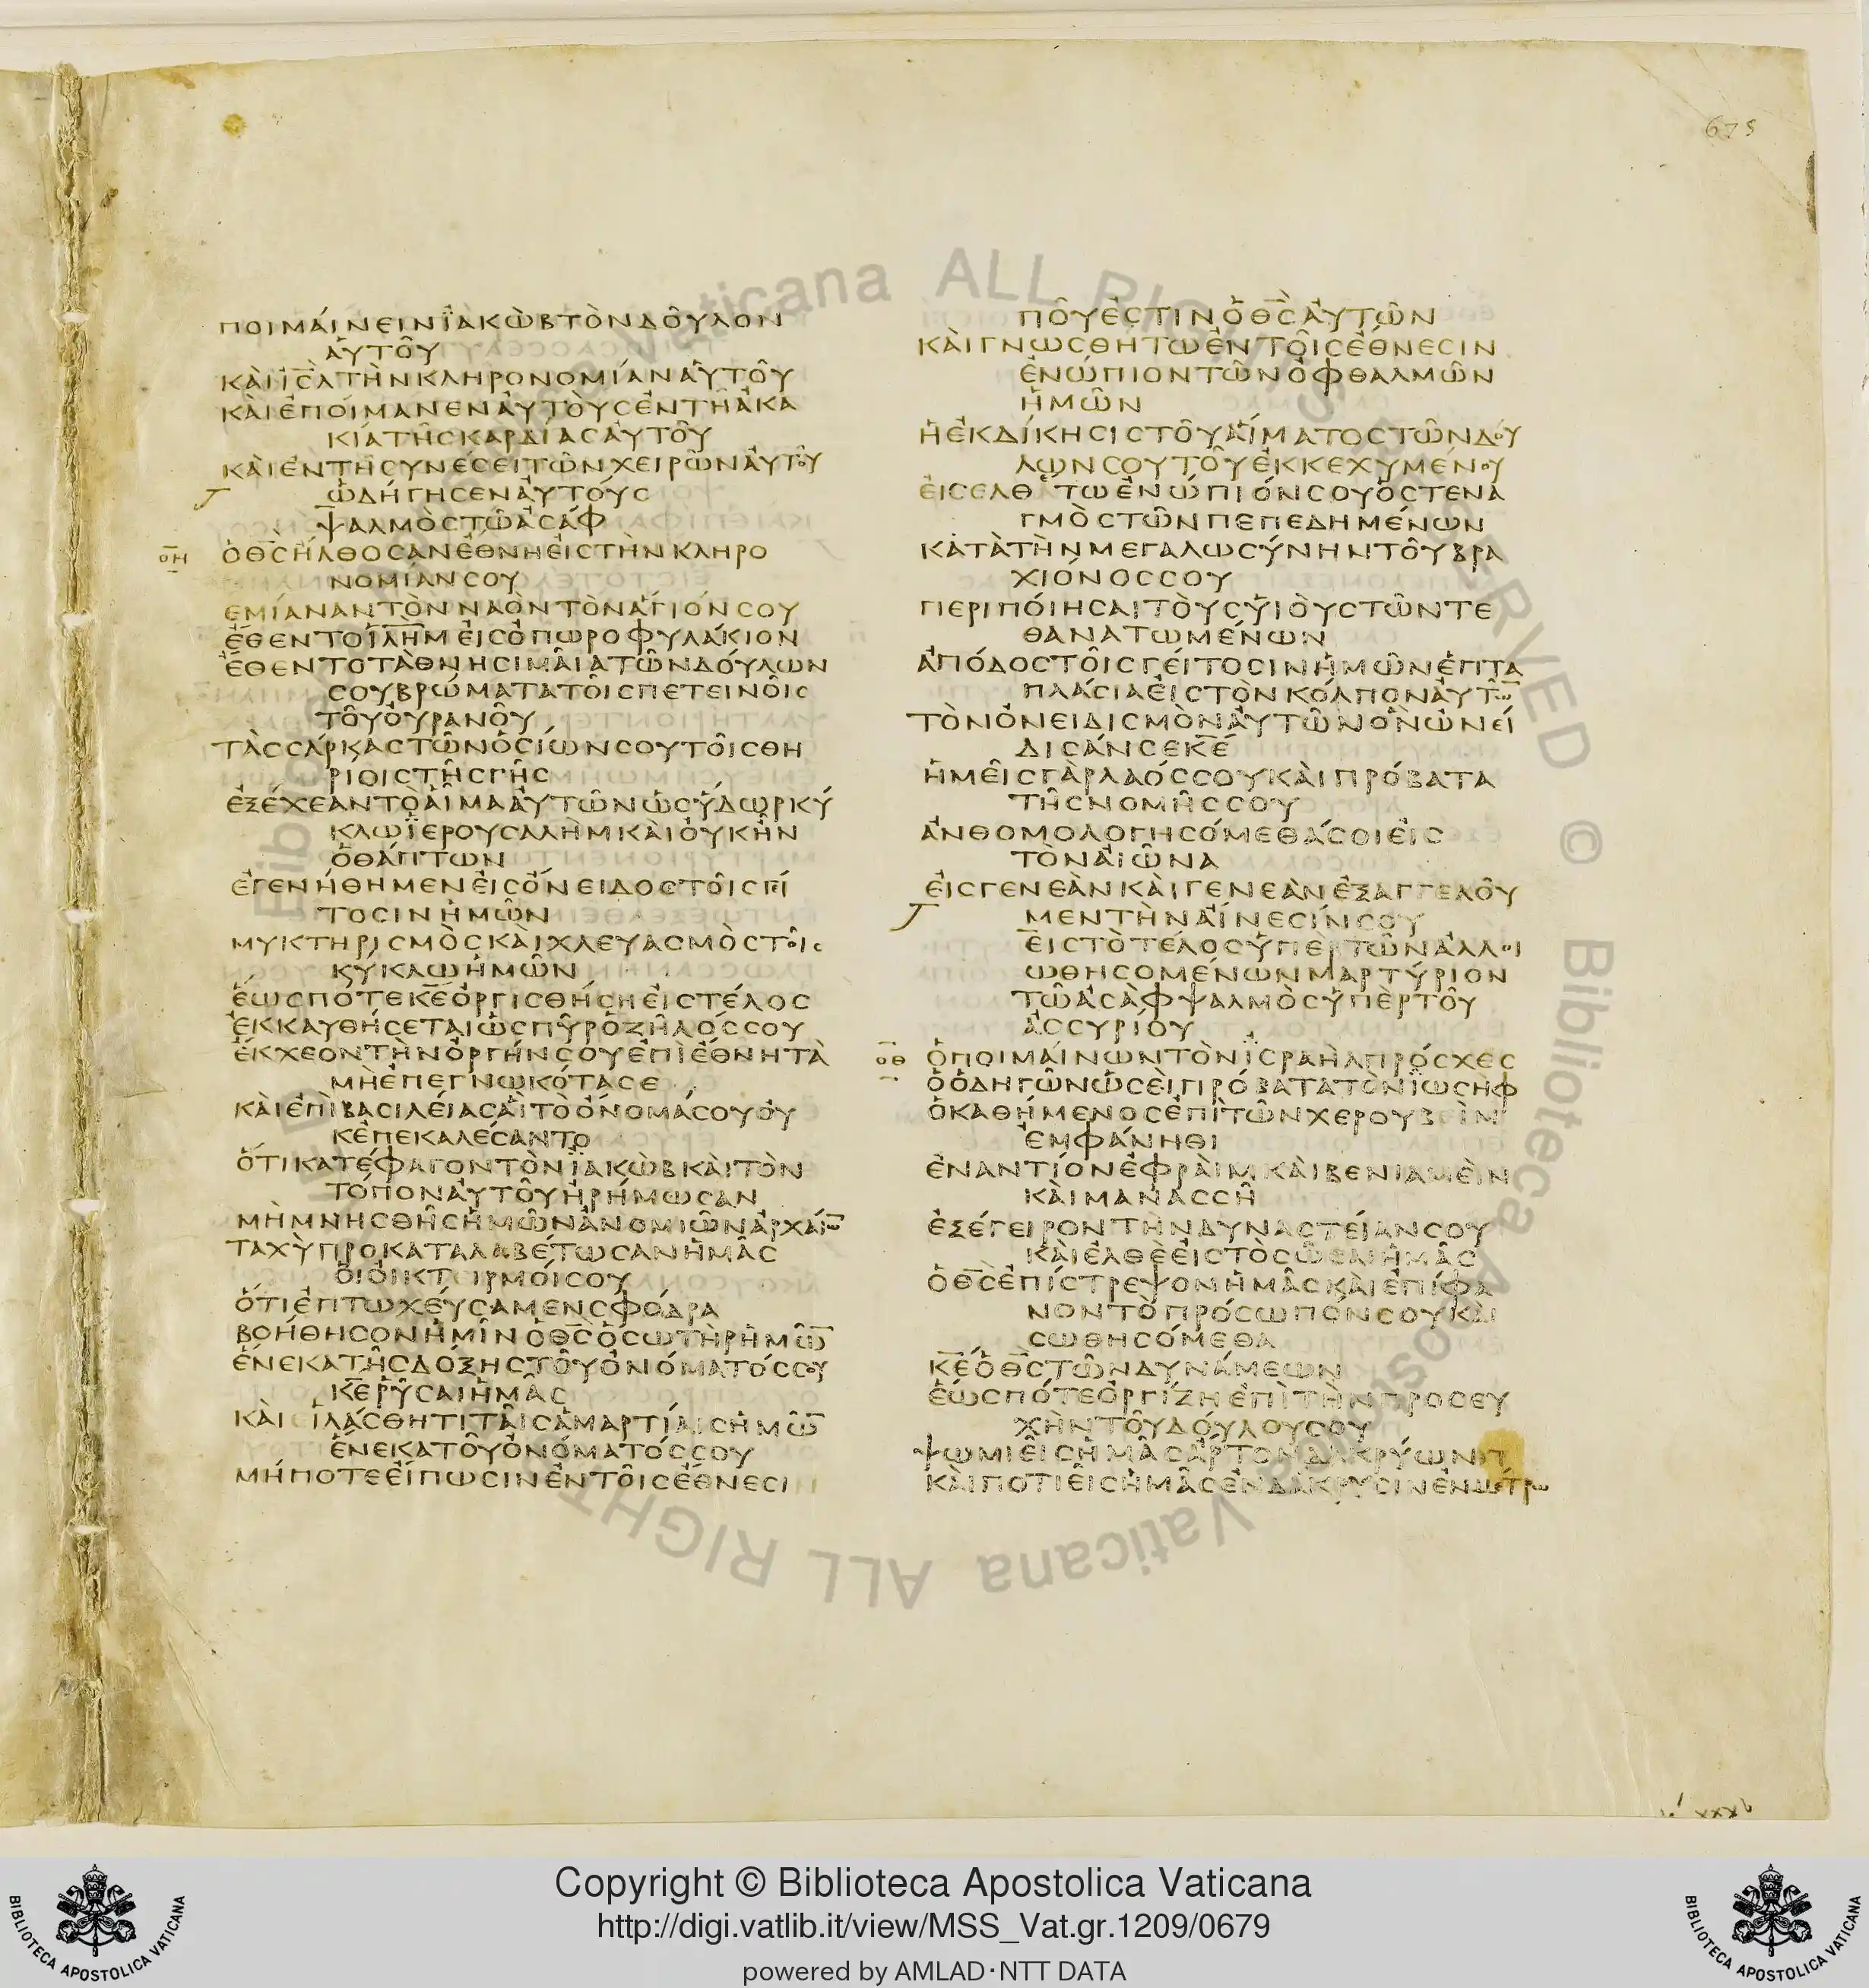 675
ΠΟΙΜΆΙΝΕΙΝΪΑΚῺΒΤῸΝΔΟΥ͂ΛΟΝ
ἈΥΤΟΥ͂
ΚᾺΙΙ̅Σ̅Λ̅ΤῊΝΚΛΗΡΟΝΟΜΊΑΝἈΥΤΟΥ͂
ΚᾺΙἘΠΟΊΜΑΝΕΝΑΥΤΟῪϹἘΝΤΗἈΚΑ
ΚΊΑΤΗ͂ϹΚΑΡΔΊΑϹΑΥΤΟΥ͂
ΚᾺΙἘΝΤΗϹΥΝΈϹΕΙΤΩ͂ΝΧΕΙΡΩ͂ΝΑΥΤΟΥ
ὩΔΉΓΗϹΕΝΑΥΤΟΎϹ
ΨΑΛΜῸϹΤΩ͂ἈϹΆΦ
ΟΗ
ὉΘ̅Ϲ̅ΉΛΘΟϹΑΝἜΘΝΗΕΙϹΤῊΝΚΛΗΡΟ
ΝΟΜΊΑΝϹΟΥ
ΕΜΊΑΝΑΝΤῸΝΝΑῸΝΤῸΝΆΓΙΌΝϹΟΥ
ἜΘΕΝΤΟΪ̅Λ̅Η̅Μ̅ΕἸϹὈΠΩΡΟΦΥΛΆΚΙΟΝ
ἜΘΕΝΤΟΤᾺΘΝΗϹΙΜΑ͂ΙΑΤΩ͂ΝΔΟΎΛΩΝ
ϹΟΥΒΡΏΜΑΤΑΤΟΙ͂ϹΠΕΤΕΙΝΟΙ͂Ϲ
ΤΟΥ͂ΟΥΡΑΝΟΥ͂
ΤᾺϹϹΆΡΚΑϹΤΩ͂ΝὉϹΊΩΝϹΟΥΤΟΙ͂ϹΘΗ
ΡΊΟΙϹΤΗ͂ϹΓΗ͂Ϲ
ἘΞΈΧΕΑΝΤῸΑΙ͂ΜΑΑΥΤΩ͂ΝὩϹΎΔΩΡΚΎ
ΚΛΩΪΕΡΟΥϹΑΛῊΜΚᾺΙΟΥΚΗ͂Ν
ὉΘΆΠΤΩΝ
ἘΓΕΝΉΘΗΜΕΝΕἸϹΌΝΕΙΔΟϹΤΟΙ͂ϹΓΕΊ
ΤΟϹΙΝἩΜΩ͂Ν
ΜΥΚΤΗΡΙϹΜῸϹΚᾺΙΧΛΕΥΑϹΜῸϹΤΟΙ͂Ϲ
ΚΎΚΛΩἩΜΩ͂Ν
ἝΩϹΠΌΤΕΚ̅Ε̅ὈΡΓΙϹΘΉϹΗΕἸϹΤΈΛΟϹ
ἘΚΚΑΥΘΉϹΕΤΑΙὩϹΠΥ͂ΡὉΖΗ͂ΛΌϹϹΟΥ
ἜΚΧΕΟΝΤῊΝὈΡΓΉΝϹΟΥἘΠῚἜΘΝΗΤᾺ
ΜῊἘΠΕΓΝΩΚΌΤΑϹΕ
ΚᾺΙἘΠῚΒΑϹΙΛΕΊΑϹἍΙΤῸΌΝΟΜΆϹΟΥΟΥ
ΚἘΠΕΚΑΛΈϹΑΝΤΟ
ὍΤΙΚΑΤΈΦΑΓΟΝΤῸΝΪΑΚῺΒΚᾺΙΤῸΝ
ΤΌΠΟΝΑΥΤΟΥ͂ἨΡΉΜΩϹΑΝ
ΜῊΜΝΗϹΘΗ͂ϹἩΜΩ͂ΝἈΝΟΜΙΩ͂ΝἈΡΧΑΊΩ̅
ΤΑΧῪΠΡΟΚΑΤΑΛΑΒΈΤΩϹΑΝἩΜΑ͂Ϲ
ὉΙΟΙΚΤΕΙΡΜΟΊϹΟΥ
ὍΤΙἘΠΤΩΧΕΎϹΑΜΕΝϹΦΌΔΡΑ
ΒΟΉΘΗϹΟΝἩΜΙ͂ΝὉΘ̅Ϲ̅ὉϹΩΤῊΡἩΜΩ̅
ἝΝΕΚΑΤΗ͂ϹΔΌΞΗϹΤΟΥ͂ὈΝΌΜΑΤΌϹϹΟΥ
Κ̅Ε̅ΡΥ͂ϹΑΙἩΜΑ͂Ϲ
ΚᾺΙΕΙΛΆϹΘΗΤΙΤΑΙ͂ϹἉΜΑΡΤΊΑΙϹἩΜΩ̅
ἝΝΕΚΑΤΟΥ͂ὈΝΌΜΑΤΌϹϹΟΥ
ΜΉΠΟΤΕΕΊΠΩϹΙΝἘΝΤΟΙ͂ϹἜΘΝΕϹΙΝ
ΠΟΥ͂ἘϹΤΙΝὉΘ̅Ϲ̅ΑΥΤΩ͂Ν
ΚᾺΙΓΝΩϹΘΗΤΩἘΝΤΟΙ͂ϹἜΘΝΕϹΙΝ
ἘΝΏΠΙΟΝΤΩ͂ΝὈΦΘΑΛΜΩ͂Ν
ἩΜΩ͂Ν
ἩἘΚΔΊΚΗϹΙϹΤΟΥ͂ΑΊΜΑΤΟϹΤΩ͂ΝΔΟΥ
ΛΩΝϹΟΥΤΟΥ͂ἘΚΚΕΧΥΜΈΝΟΥ
ΕἸϹΕΛΘΆΤΩἘΝΏΠΙΌΝϹΟΥὉϹΤΕΝΑ
ΓΜῸϹΤΩ͂ΝΠΕΠΕΔΗΜΈΝΩΝ
ΚΑΤᾺΤῊΝΜΕΓΑΛΩϹΎΝΗΝΤΟΥ͂ΒΡΑ
ΧΙΌΝΟϹϹΟΥ
ΠΕΡΙΠΟΊΗϹΑΙΤΟῪϹΥἹΟῪϹΤΩ͂ΝΤΕ
ΘΑΝΑΤΩΜΈΝΩΝ
ἈΠΌΔΟϹΤΟΙ͂ϹΓΕΊΤΟϹΙΝἩΜΩ͂ΝἙΠΤΑ
ΠΛΆϹΙΑΕἸϹΤῸΝΚΌΛΠΟΝΑΥΤΩ̅
ΤῸΝὈΝΕΙΔΙϹΜῸΝΑΥΤΩ͂ΝΟΝΩΝΕΊ
ΔΙϹΆΝϹΕΚ̅Ε̅
ἩΜΕΙ͂ϹΓᾺΡΛΑΌϹϹΟΥΚᾺΙΠΡΌΒΑΤΑ
ΤΗ͂ϹΝΟΜΗ͂ϹϹΟΥ
ἈΝΘΟΜΟΛΟΓΗϹΌΜΕΘΆϹΟΙΕἸϹ
ΤῸΝΑἸΩ͂ΝΑ
ΕἸϹΓΕΝΕᾺΝΚᾺΙΓΕΝΕᾺΝἘΞΑΓΓΕΛΟΥ͂
ΜΕΝΤῊΝΑΊΝΕϹΊΝϹΟΥ
ΕἸϹΤῸΤΈΛΟϹΥΠῈΡΤΩ͂ΝἈΛΛΟΙ
ΩΘΗϹΟΜΈΝΩΝΜΑΡΤΎΡΙΟΝ
ΤΩ͂ἈϹᾺΦΨΑΛΜῸϹΥΠῈΡΤΟΥ͂
ἈϹϹΥΡΊΟΥ
ΟΘ
ὉΠΟΙΜΑΊΝΩΝΤῸΝΪϹΡΑῊΛΠΡΌϹΧΕϹ
ὉὉΔΗΓΩ͂ΝὩϹΕῚΠΡΌΒΑΤΑΤῸΝΪΩϹῊΦ
ὉΚΑΘΉΜΕΝΟϹἘΠῚΤΩ͂ΝΧΕΡΟΥΒΕῚΝ
ἘΜΦΆΝΗΘΙ
ἘΝΑΝΤΊΟΝἘΦΡᾺΙΜΚᾺΙΒΕΝΙΑΜΕῚΝ
ΚᾺΙΜΑΝΑϹϹΗ͂
ἘΞΈΓΕΙΡΟΝΤῊΝΔΥΝΑϹΤΕΊΑΝϹΟΥ
ΚᾺΙἘΛΘῈΕἸϹΤῸϹΩ͂ϹΑΙἩΜΑ͂Ϲ
ὉΘ̅Ϲ̅ἘΠΊϹΤΡΕΨΟΝἩΜΑ͂ϹΚᾺΙἘΠΊΦΑ
ΝΟΝΤῸΠΡΌϹΩΠΌΝϹΟΥΚᾺΙ
ϹΩΘΗϹΌΜΕΘΑ
Κ̅Ε̅ὉΘ̅Ϲ̅ΤΩ͂ΝΔΥΝΆΜΕΩΝ
ἝΩϹΠΌΤΕὈΡΓΊΖΗἘΠῚΤῊΝΠΡΟϹΕΥ
ΧῊΝΤΟΥ͂ΔΟΎΛΟΥϹΟΥ
ΨΩΜΙΕΙ͂ϹἩΜΑ͂ϹΆΡΤΟΝΔΑΚΡΎΩΝ
ΚᾺΙΠΟΤΙΕΙ͂ϹἩΜΑ͂ϹἘΝΔΆΚΡΥϹΙΝἘΝΜΈΤΡΩ
Biblioteca Apostolica Vaticana ALL RIGHTS RESERVED ©
Copyright © Biblioteca Apostolica Vaticana
http://digi.vatlib.it/view/MSS_Vat.gr.1209/0679
powered by AMLAD·NTT DATA
BIBLIOTECA APOSTOLICA VATICANA
BIBLIOTECA APOSTOLICA VATICANA